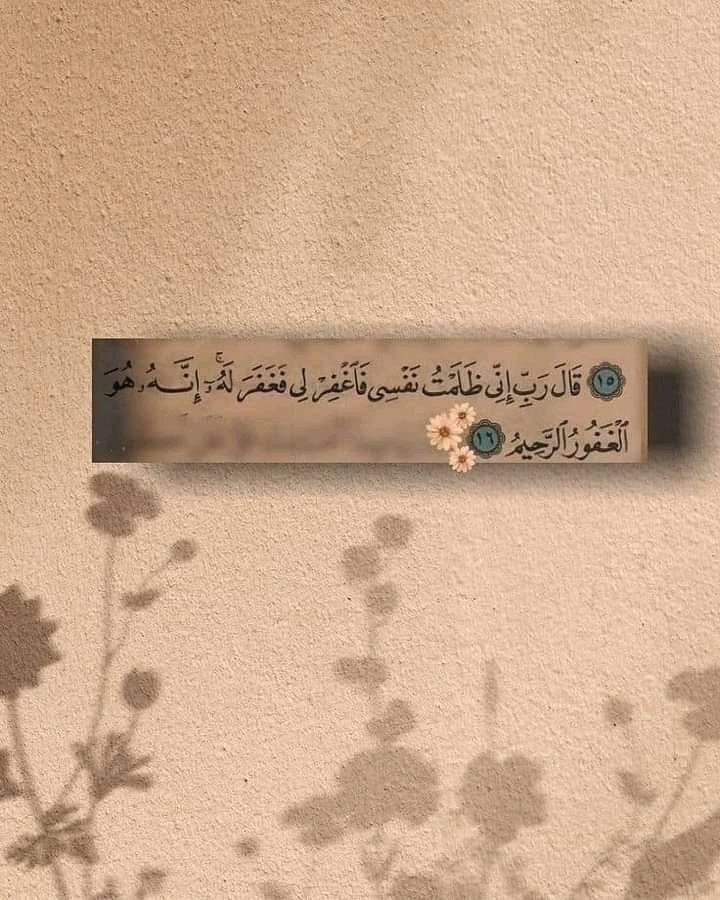 ١٥ قَالَ رَبِّ إِنِّى ظَلَمْتُ نَفْسِى فَٱغْفِرْ لِى فَغَفَرَ لَهُۥٓ ۚ إِنَّهُۥ هُوَ
ٱلْغَفُورُ ٱلرَّحِيمُ ١٦